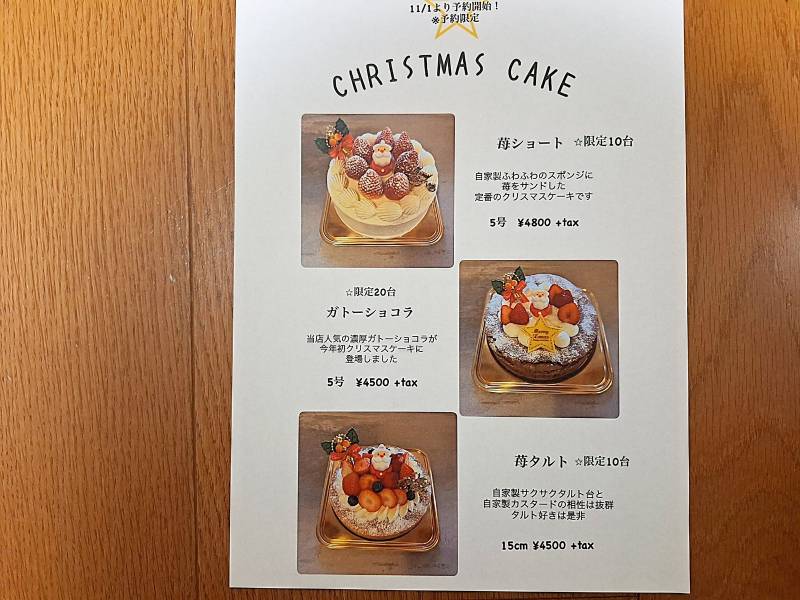 11/1より予約開始！
※予約限定
CHRISTMAS CAKE
苺ショート ☆限定10台
自家製ふわふわのスポンジに
苺をサンドした
定番のクリスマスケーキです
5号 ¥4800 +tax
☆限定20台
ガトーショコラ
当店人気の濃厚ガトーショコラが
今年初クリスマスケーキに
登場しました
5号 ¥4500 +tax
苺タルト ☆限定10台
自家製サクサクタルト台と
自家製カスタードの相性は抜群
タルト好きは是非
15cm ¥4500 +tax